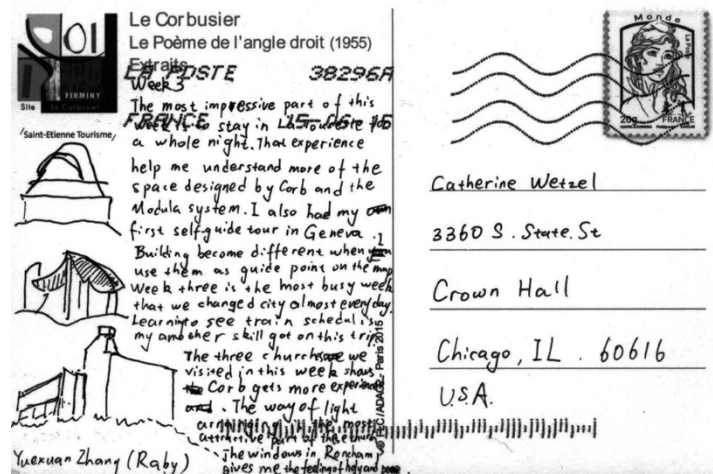 Le Corbusier
Le Poème de l'angle droit (1955)
Extraits
LA POSTE 38296A
FRANCE 15-06-15
FIRMINY
Site Le Corbusier
Saint-Etienne Tourisme
Week 3
The most impressive part of this
week is to stay in La Tourette for
a whole night. That experience
help me understand more of the
space designed by Corb and the
Modula system. I also had my own
first self guide tour in Geneva. I
Building become different when you
use them as guide point on the map
Week three is the most busy week
that we changed city almost everyday.
Learning to see train schedul is
my another skill got on this trip.
The three churches we
visited in this week shows
Corb gets more experience
and . The way of light
in the most
attractive part of the church
The windows in Roncham
gives me the feeling of holy and
Yuexuan Zhang (Raby)
© FLC/ADAGP - Paris 2015
Monde
20g
FRANCE
Catherine Wetzel
3360 S. State. St
Crown Hall
Chicago, IL . 60616
U.S.A.